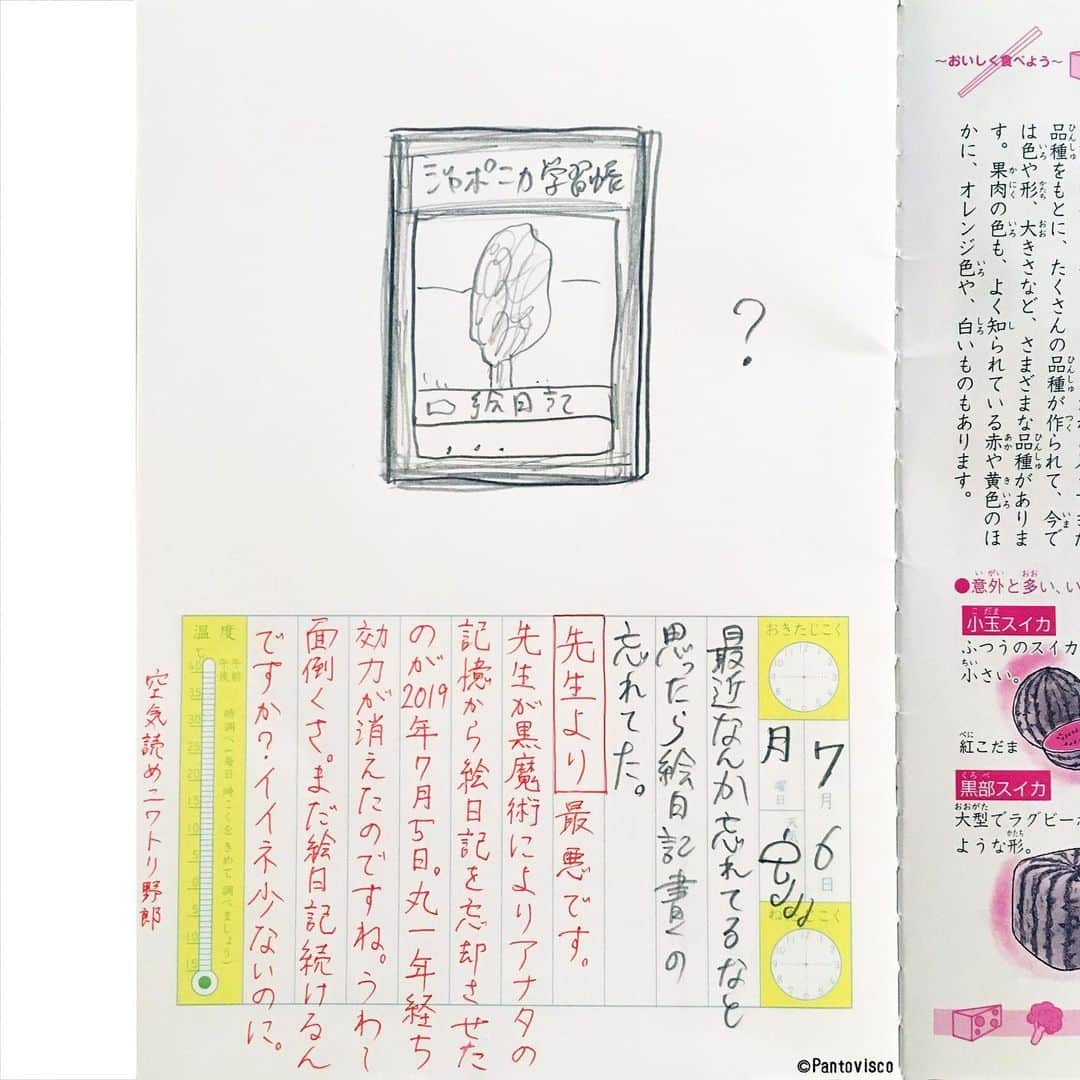 ジャポニカ学習帳
絵日記
?
おきたじこく
7月6日
月曜日
最近なんか忘れてるなと
思ったら絵日記書くの
忘れてた。
先生より 最悪です。
先生が黒魔術によりアナタの
記憶から絵日記を忘却させた
のが2019年7月5日。丸一年経ち
効力が消えたのですね。うわー
面倒くさ。まだ絵日記続けるん
ですか?イイネ少ないのに。
空気読めニワトリ野郎
温度
午前
午後
時調べ(毎日時こくをきめて調べましょう)
~おいしく食べよう~
品種をもとに、たくさんの品種が作られて、今で
は色や形、大きさなど、さまざまな品種がありま
す。果肉の色も、よく知られている赤や黄色のほ
かに、オレンジ色や、白いものもあります。
●意外と多い、い
小玉スイカ
ふつうのスイカ
小さい。
紅こだま
黒部スイカ
大型でラグビー
ような形。
©Pantovisco